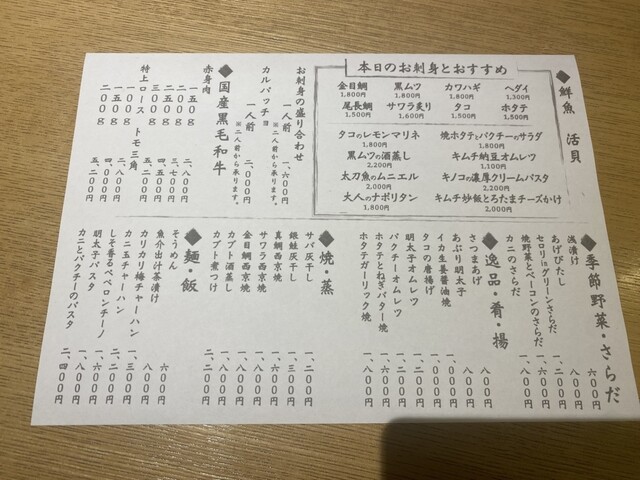 ◆鮮魚 活貝
本日のお刺身とおすすめ
金目鯛 1,800円
黒ムツ 1,800円
カワハギ 1,800円
ヘダイ 1,300円
尾長鯛 1,500円
サワラ炙り 1,600円
タコ 1,500円
ホタテ 1,500円
タコのレモンマリネ 1,800円
焼ホタテとパクチーのサラダ 1,800円
黒ムツの酒蒸し 2,200円
キムチ納豆オムレツ 1,100円
太刀魚のムニエル 2,000円
キノコの濃厚クリームパスタ 2,200円
大人のナポリタン 1,800円
キムチ炒飯とろたまチーズかけ 2,000円
お刺身の盛り合わせ
一人前 一、六〇〇円
※二人前から承ります。
カルパッチョ
一人前 二、〇〇〇円
※二人前から承ります。
◆国産黒毛和牛
赤身肉
一五〇g 二、八〇〇円
二〇〇g 三、七〇〇円
二五〇g
三〇〇g 五、二〇〇円
特上ロース、トモ三角
一〇〇g
一五〇g 四、〇〇〇円
二〇〇g 五、二〇〇円
◆季節野菜・さらだ
浅漬け 六〇〇円
あげびたし 八〇〇円
セロリinグリーンさらだ 一、二〇〇円
焼野菜とベーコンのさらだ
カニのさらだ
◆逸品・肴・揚
さつまあげ 八〇〇円
あぶり明太子 八〇〇円
イカ生姜醤油焼
タコの唐揚げ
明太子オムレツ
パクチーオムレツ
ホタテとねぎバター焼
ホタテガーリック焼 一、八〇〇円
◆焼・蒸
サバ灰干し 一、二〇〇円
銀鮭灰干し 一、三〇〇円
真鯛西京焼 一、六〇〇円
サワラ西京焼
金目鯛西京焼 一、八〇〇円
カブト酒蒸し
カブト煮つけ 二、二〇〇円
◆麺・飯
そうめん 六〇〇円
魚介出汁茶漬け
カリカリ梅チャーハン
カニ玉チャーハン
しそ香るペペロンチーノ
明太子パスタ 一、八〇〇円
カニとパクチーのパスタ 二、四〇〇円